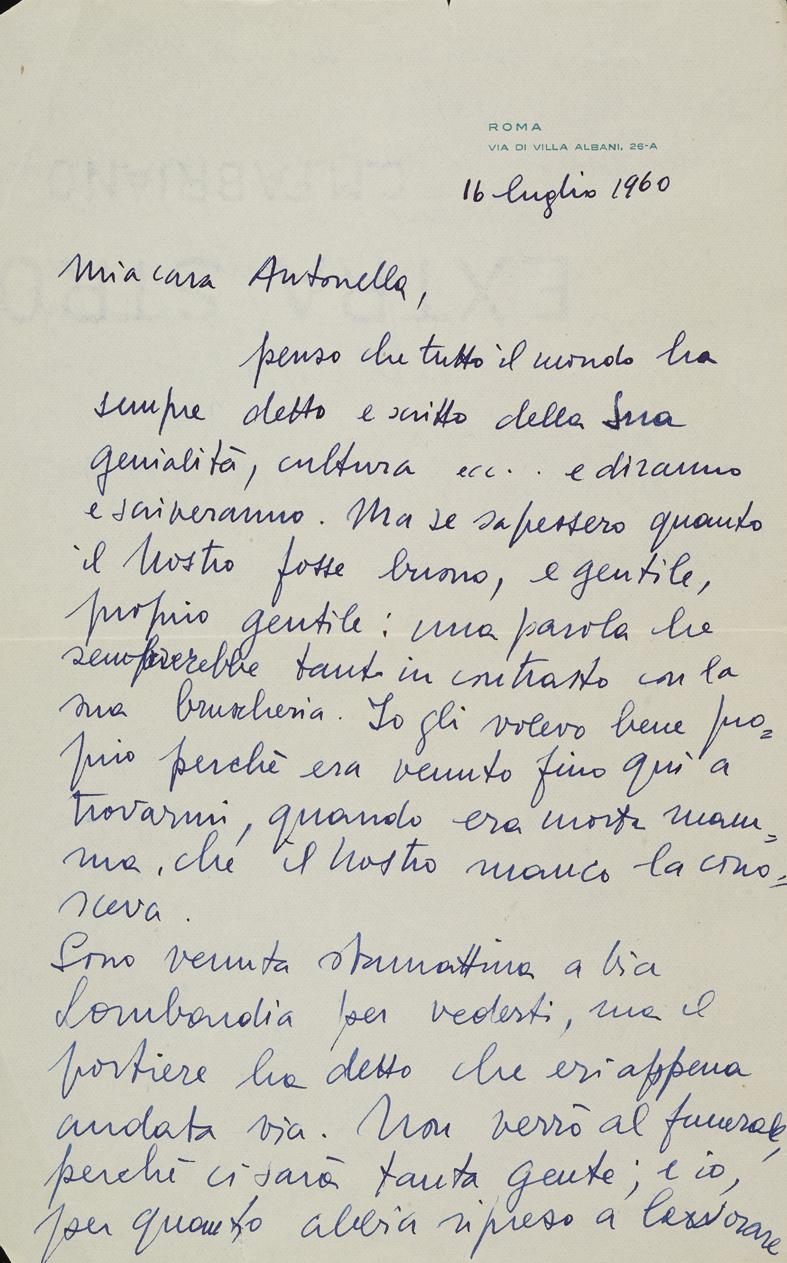 ROMA
VIA DI VILLA ALBANI, 26-A
16 luglio 1960
Mia cara Antonella,
penso che tutto il mondo ha
sempre detto e scritto della Sua
genialità, cultura ecc. . . e diranno
e scriveranno. Ma se sapessero quanto
il Nostro fosse buono, e gentile,
proprio gentile: una parola che
sembrerebbe tanto in contrasto con la
sua bruscheria. Io gli volevo bene pro=
prio perchè era venuto fino qui a
trovarmi, quando era morta mam=
ma, che il Nostro manco la cono=
sceva.
Sono venuta stamattina a Via
Lombardia per vederti, ma il
portiere ha detto che eri appena
andata via. Non verrò al funerale,
perchè ci sarà tanta gente; e io,
per quanto abbia ripreso a lavorare